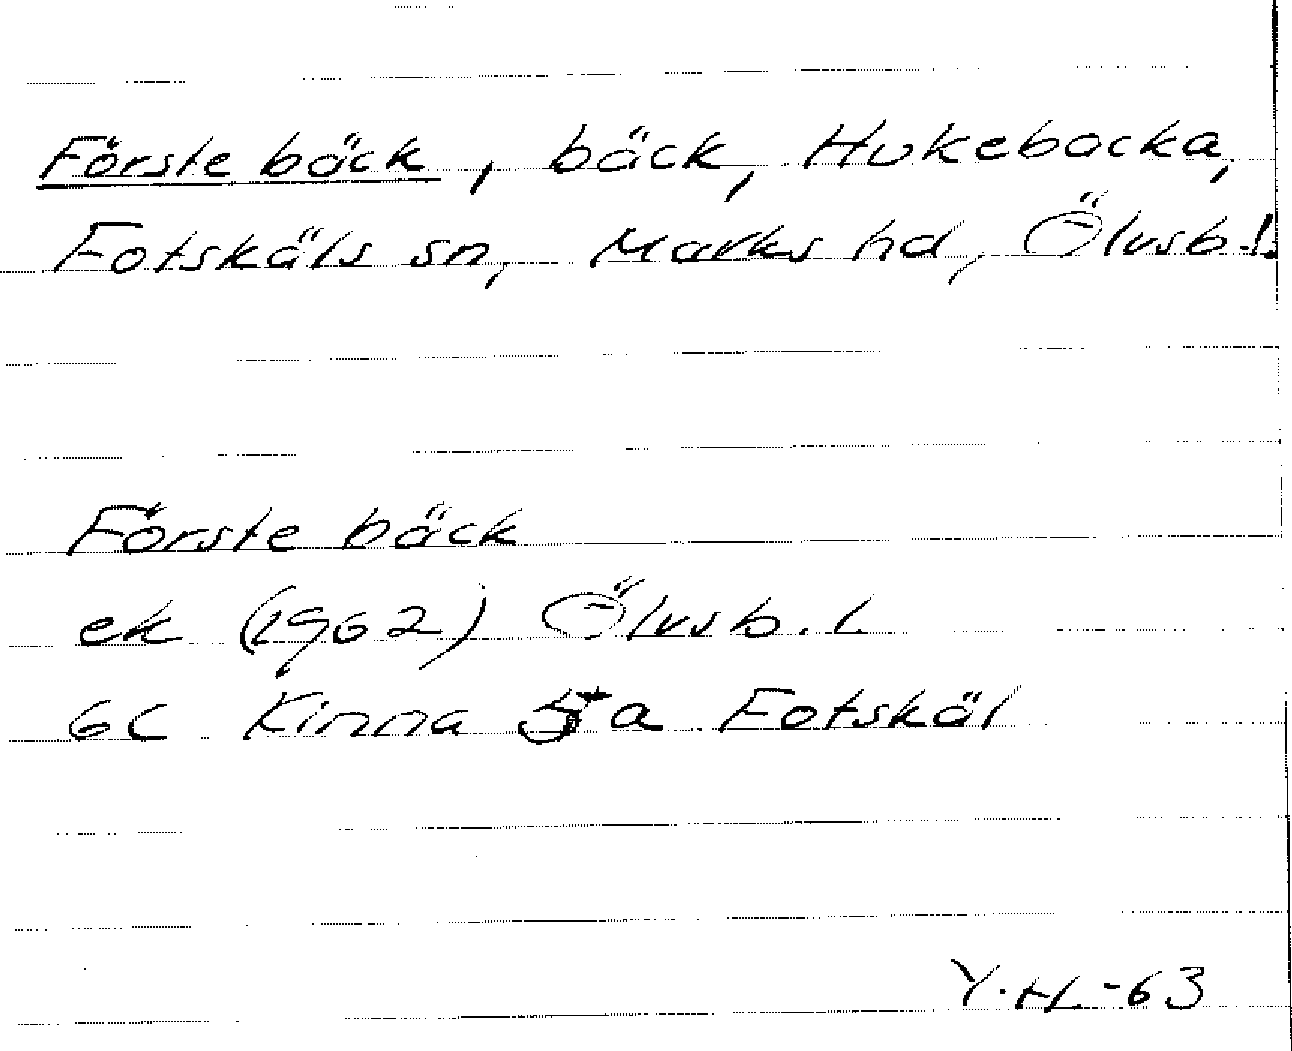 Förste bäck, bäck, Hukebacka,
Fotskäls sn, Marks hd, Älvsb.l.
Förste bäck
ek (1962) Älvsb.l.
6C Kinna 5a Fotskäl
Y.H.-63